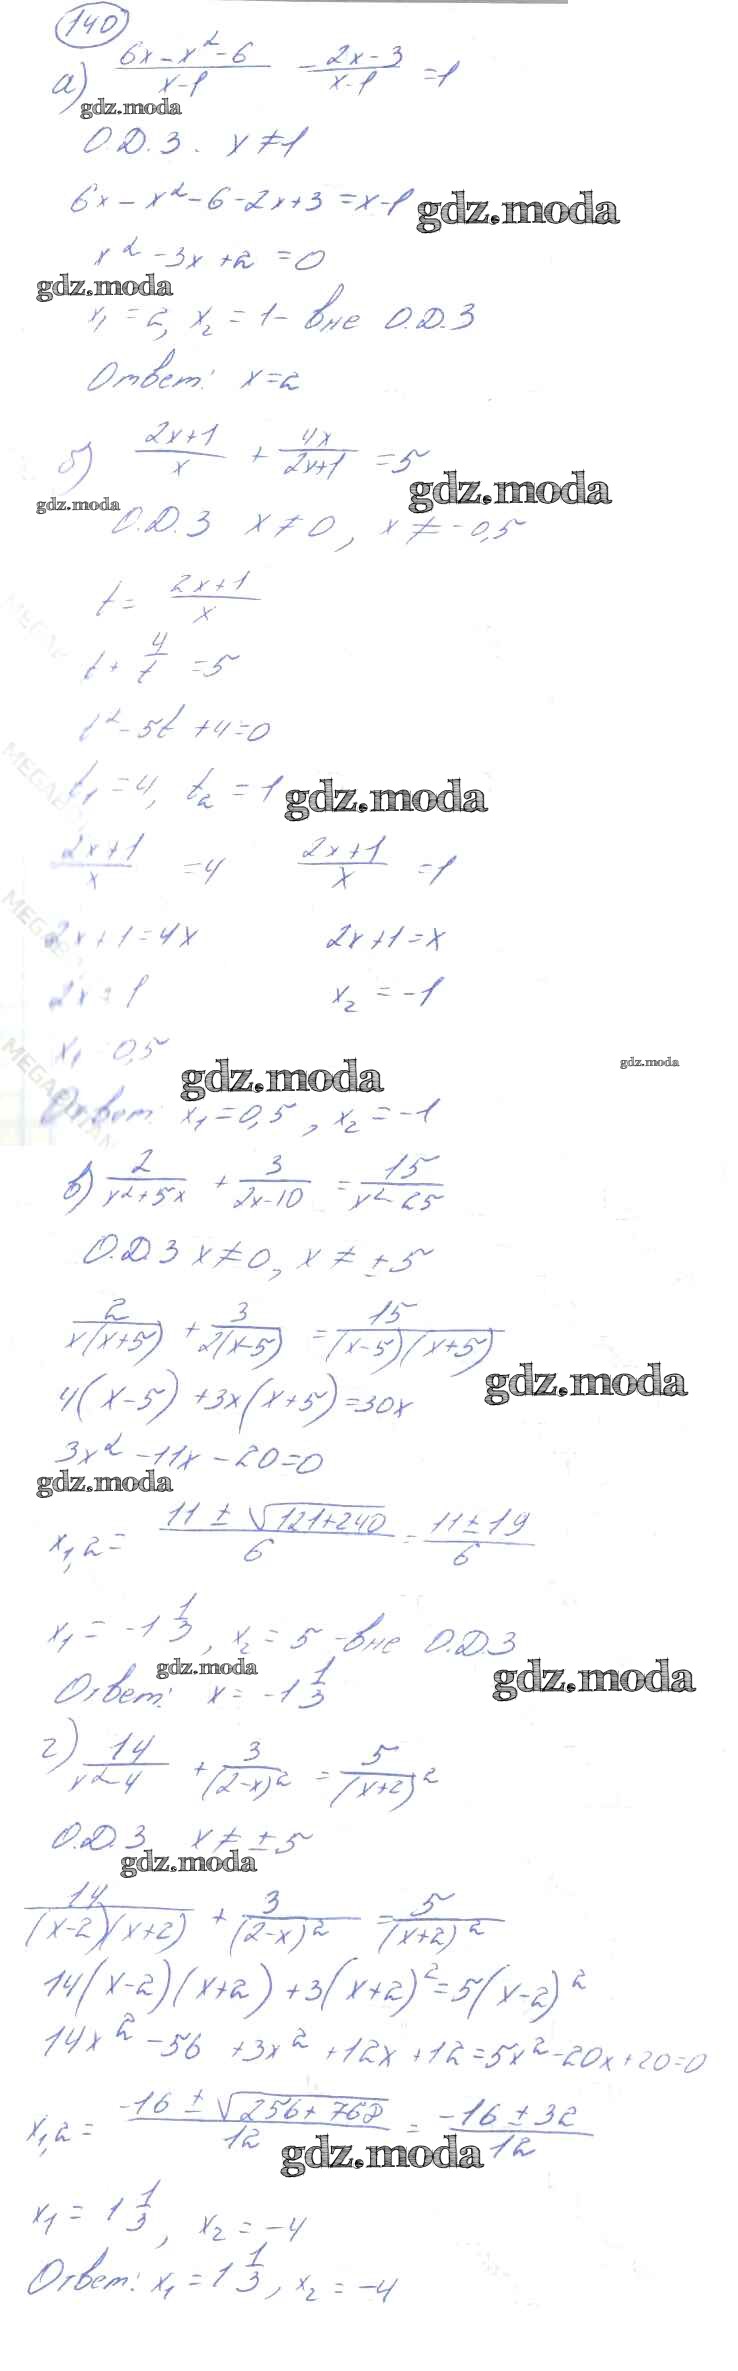 140
а) (6x-x²-6)/(x-1) - (2x-3)/(x-1) = 1
gdz.moda
О.Д.З. x≠1
6x-x²-6-2x+3=x-1 gdz.moda
x²-3x+2=0
gdz.moda
x₁=2, x₂=1- вне О.Д.З
Ответ: x=2
б) (2x+1)/x + 4x/(2x+1) = 5
gdz.moda
gdz.moda
О.Д.З x≠0, x≠-0,5
t = (2x+1)/x
t + 4/t = 5
t²-5t+4=0
t₁=4, t₂=1 gdz.moda
(2x+1)/x = 4 (2x+1)/x = 1
2x+1=4x 2x+1=x
2x=1 x₂=-1
x₁ 0,5
gdz.moda gdz.moda
Ответ: x₁=0,5, x₂=-1
в) 2/(x²+5x) + 3/(2x-10) = 15/(x²-25)
О.Д.З x≠0, x≠±5
2/(x(x+5)) + 3/(2(x-5)) = 15/((x-5)(x+5))
gdz.moda
4(x-5)+3x(x+5)=30x
3x²-11x-20=0
gdz.moda
x₁,₂ = (11±√(121+240))/6 = (11±19)/6
x₁=-1 1/3, x₂=5 -вне О.Д.З
gdz.moda gdz.moda
Ответ: x=-1 1/3
г) 14/(x²-4) + 3/(2-x)² = 5/(x+2)²
О.Д.З x≠±5
gdz.moda
14/((x-2)(x+2)) + 3/(2-x)² = 5/(x+2)²
14(x-2)(x+2)+3(x+2)²=5(x-2)²
14x²-56+3x²+12x+12=5x²-20x+20=0
x₁,₂ = (-16±√(256+768))/12 = (-16±32)/12
gdz.moda
x₁=1 1/3, x₂=-4
Ответ: x₁=1 1/3, x₂=-4